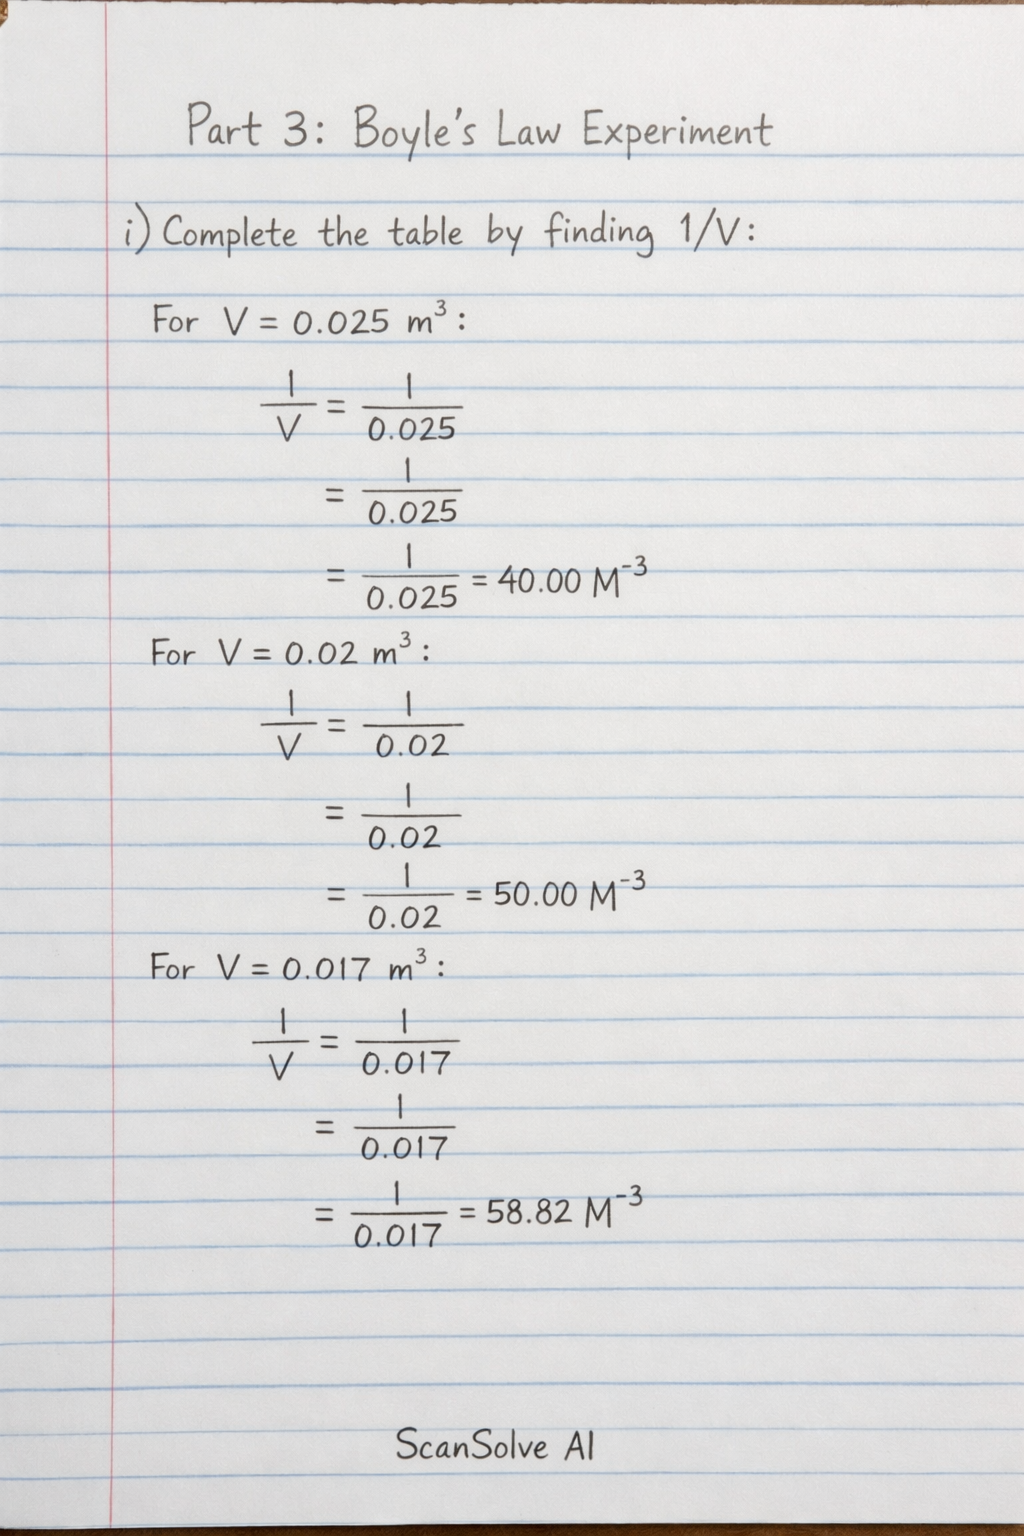 Part 3: Boyle's Law Experiment
i) Complete the table by finding 1/V:
For V = 0.025 m³:
1/V = 1/0.025
= 1/0.025
= 1/0.025 = 40.00 M⁻³
For V = 0.02 m³:
1/V = 1/0.02
= 1/0.02
= 1/0.02 = 50.00 M⁻³
For V = 0.017 m³:
1/V = 1/0.017
= 1/0.017
= 1/0.017 = 58.82 M⁻³
ScanSolve AI